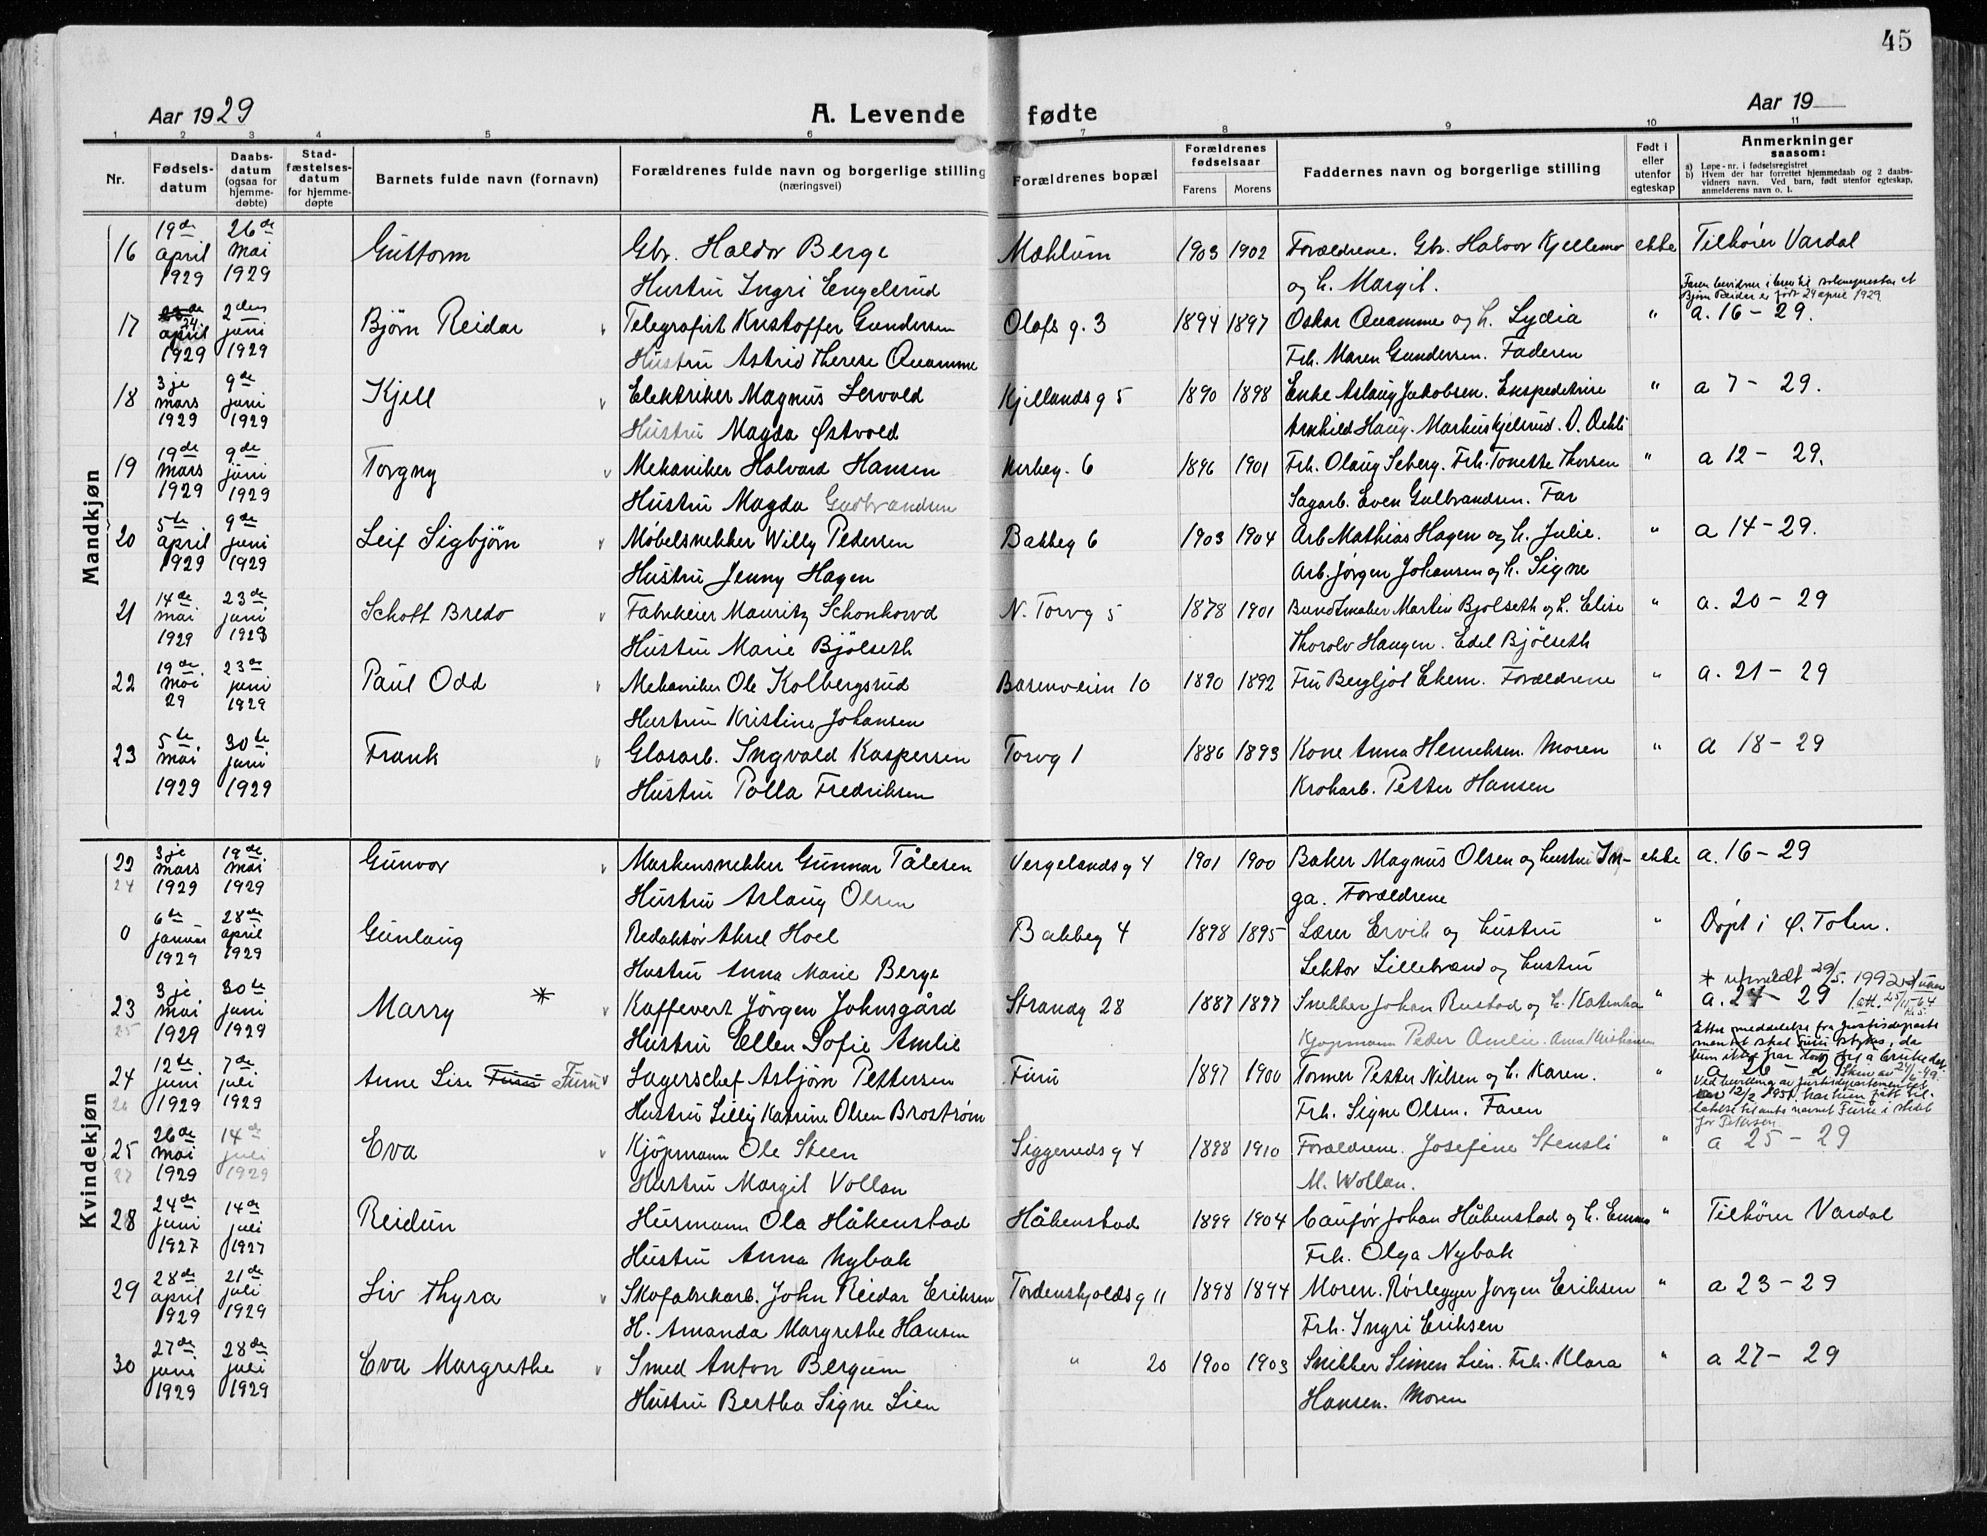 45
Aar 1929 A. Levende fødte Aar 19
1 2 3 4 5 6 7 8 9 10 11
Nr. Fødsels-datum Daabs-datum (ogsaa for hjemme-døbte) Stad-fæstelses-datum for hjemme-døpte Barnets fulde navn (fornavn) Forældrenes fulde navn og borgerlige stilling (næringsvei) Forældrenes bopæl Forældrenes fødselsaar Farens Morens Faddernes navn og borgerlige stilling Født i eller utenfor egteskap Anmerkninger saasom: a) Løpe-nr. i fødselsregistret b) Hvem der har forrettet hjemmedaab og 2 daabs-vidners navn. Ved barn, født utenfor egteskap, anmelderens navn o. l.
Mandkjøn
16 19de april 1929 26de mai 1929 Guttorm Gbr. Haldor Berge Mæhlum 1903 1902 Forældrene. Gbr. Halvor Kjellemo ekte Tilhører Vardal
Hustru Ingri Engelsrud og h. Margit.
Faren bevidner i brev til soknepresten at Bjørn Reidar er født 24 april 1929
17 24 april 1929 2den juni 1929 Bjørn Reidar Telegrafist Kristoffer Gundersen Olafs g. 3 1894 1897 Oskar Quamme og h. Lydia " a. 16 - 29.
Hustru Astrid Therese Quamme Frk. Maren Gundersen. Faderen
18 3je mars 1929 9de juni 1929 Kjell Elektriker Magnus Servold Kjellands g 5 1890 1898 Enke Aslaug Jakobsen. Ekspeditrise " a 7 - 29.
Hustru Magda Østvold Arnhild Haug. Markus Kjelsrud. O. Oehli
19 19de mars 1929 9de juni 1929 Torgny Mekaniker Halvard Hansen Kirkeg. 6 1896 1901 Frk. Olaug Seberg. Frk. Tonette Thorsen " a 12 - 29.
Hustru Magda Gudbrandsen Sagarb. Even Gulbrandsen. Far
20 5te april 1929 9de juni 1929 Leif Sigbjørn Møbelsnekker Willy Pedersen Bakkeg 6 1903 1904 Arb. Mathias Hagen og h. Julie. " a 14 - 29.
Hustru Jenny Hagen Arb. Jørgen Johansen og h. Signe
21 14de mai 1929 23de juni 1929 Schott Bredo Fabrikeier Mauritz Schonhowd N. Torvg 5 1878 1901 Buntmaker Martin Bjølseth og h. Elise " a. 20 - 29
Hustru Marie Bjølseth Thorolv Haugen. Edel Bjølseth
22 19de mai 29 23de juni 1929 Paul Odd Mekaniker Ole Kolbergsrud Bassenveien 10 1890 1892 Fru Bergljot Ekern. Forældrene " a. 21 - 29
Hustru Kristine Johansen
23 5te mai 1929 30te juni 1929 Frank Glasarb. Ingvald Kaspersen Torvg 1 1886 1893 Kone Anna Henriksen. Moren " a 18 - 29
Hustru Polla Fredriksen Krokarb. Petter Hansen
Kvindekjøn
22 24 3je mars 1929 19de mai 1929 Gunvor Maskinsnekker Gunnar Tålesen Vergelands g 4 1901 1900 Baker Magnus Olsen og hustru In- ekte a. 16 - 29
Hustru Aslaug Olsen ga. Forældrene
0 6te januar 1929 28de april 1929 Gunlaug Redaktør Aksel Hoel Bakkeg 4 1898 1895 Lærer Ervik og hustru " Døpt i Ø. Toten.
Hustru Anna Marie Berge Lektor Lillebrand og hustru
23 25 3je mai 1929 30te juni 1929 Marry * Kaffevert Jørgen Johnsgård Strandg 28 1887 1897 Snekker Johan Rustad og h. Katinka " * utmeldt 29/5. 1992 a. 24 - 29
Hustru Ellen Sofie Amlie Kjøpmann Peder Amlie. Anna Kristiansen
24 26 12te juni 1929 7de juli 1929 Anne Lise Furu Furu Lagerschef Asbjørn Pettersen Furu 1897 1900 Former Petter Nilsen og h. Karen. " a 26 - 29
Hustru Lilly Katrine Olsen Brostrøm Frk. Signe Olsen. Faren
Efter meddelelse fra Justisdepartementet skal Furu strykes, da hun ikke har lov til å bruke det.
Ved bevilling av Justisdepartementet av 12/2 1951 har hun fått tillatelse til anta navnet Furu i stedet for Petersen.
25 27 26de mai 1929 14de juli 1929 Eva Kjøpmann Ole Steen Siggeruds g 4 1898 1910 Forældrene. Josefine Stensli " a 25 - 29
Hustru Margit Vollan M. Wollan.
28 24de juni 1927 14de juli 1927 Reidun Hurmann Ola Håkenstad Håkenstad 1899 1904 Caufør Johan Håkenstad og h. Emma " Tilhører Vardal
Hustru Anna Nybak Frk. Olga Nybak
29 28de april 1929 21de juli 1929 Liv Thyra Skofabrikarb. John Reidar Eriksen Tordenskjolds g 11 1898 1894 Moren. Rørlegger Jørgen Eriksen " a 23 - 29
H. Amanda Margrethe Hansen Frk. Ingri Eriksen
30 27de juni 1929 28de juli 1929 Eva Margrethe Smed Anton Bergum " 20 1900 1903 Snekker Simen Lien. Frk. Klara " a 27 - 29
Hustru Bertha Signe Lien Hansen. Moren